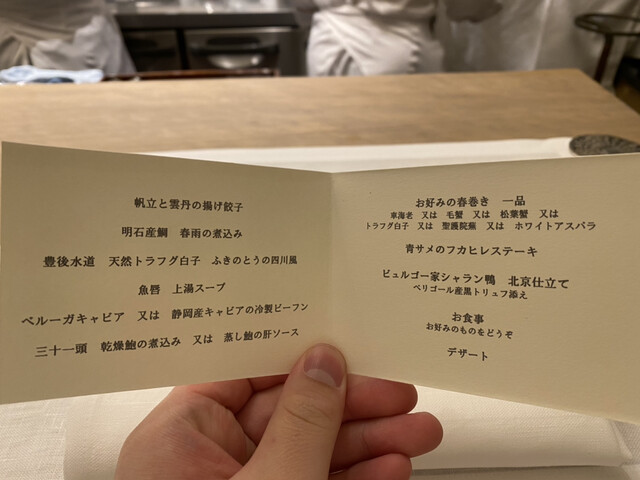 帆立と雲丹の揚げ餃子
明石産鯛 春雨の煮込み
豊後水道 天然トラフグ白子 ふきのとうの四川風
魚唇 上湯スープ
ベルーガキャビア 又は 静岡産キャビアの冷製ビーフン
三十一頭 乾燥鮑の煮込み 又は 蒸し鮑の肝ソース
お好みの春巻き 一品
車海老 又は 毛蟹 又は 松葉蟹 又は
トラフグ白子 又は 聖護院蕪 又は ホワイトアスパラ
青サメのフカヒレステーキ
ビュルゴー家シャラン鴨 北京仕立て
ペリゴール産黒トリュフ添え
お食事
お好みのものをどうぞ
デザート